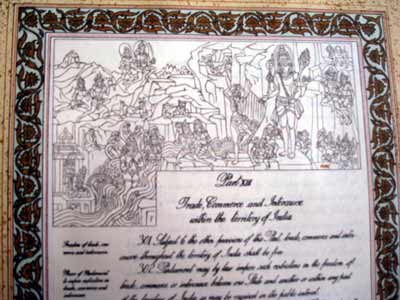 Part XIII
Trade, Commerce and Intercourse
within the territory of India
Freedom of trade, com-
merce and intercourse.
301. Subject to the other provisions of this Part, trade, commerce and inter-
course throughout the territory of India shall be free.
Power of Parliament
to impose restrictions on
trade, commerce and
intercourse.
302. Parliament may by law impose such restrictions on the freedom of
trade, commerce or intercourse between one State and another or within any part
of the territory of India as may be required in the public interest.